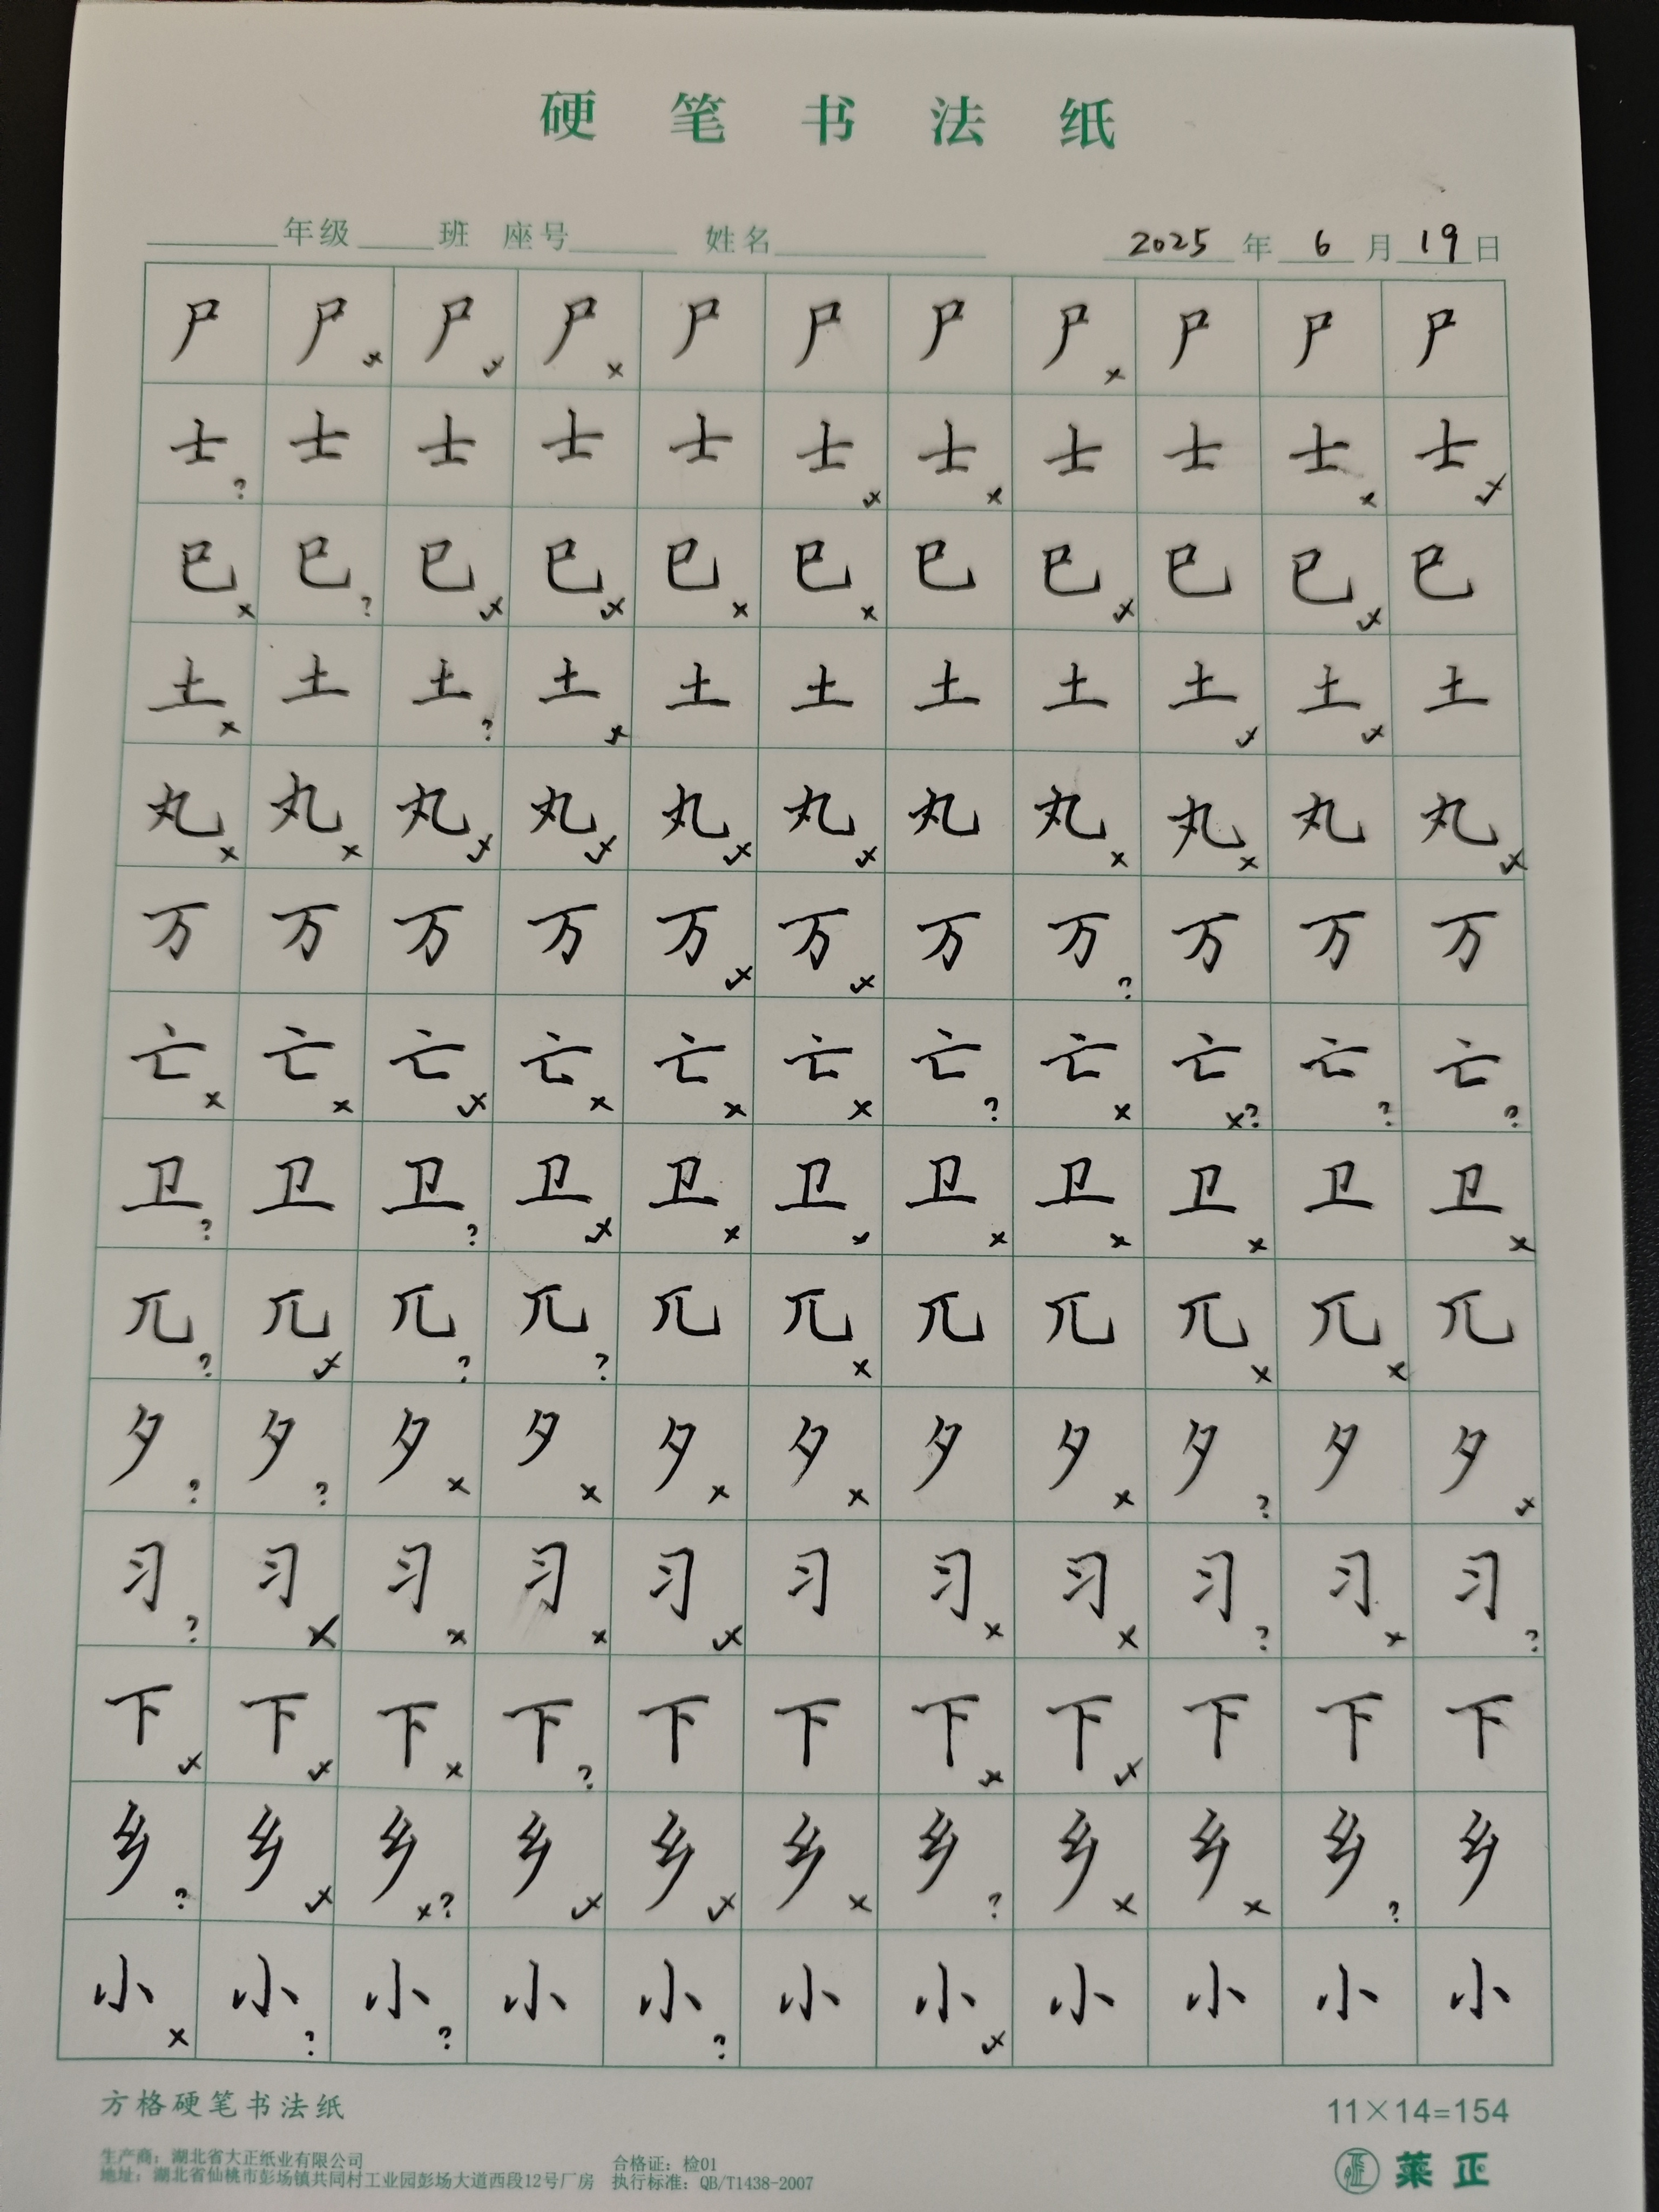 硬笔书法纸
年级 班 座号 姓名 2025年6月19日
尸 尸 尸 尸 尸 尸 尸 尸 尸 尸 尸
士 ? 士 士 士 士 士 士 × 士 士 士 × 士
巳 × 巳 ? 巳 巳 巳 × 巳 × 巳 巳 巳 巳 巳
土 × 土 土 ? 土 土 土 土 土 土 土 土
丸 × 丸 × 丸 丸 丸 丸 丸 丸 × 丸 × 丸 丸
万 万 万 万 万 万 万 万 ? 万 万 万
亡 × 亡 × 亡 亡 × 亡 × 亡 × 亡 ? 亡 × 亡 ×? 亡 ? 亡 ?
卫 ? 卫 卫 ? 卫 卫 × 卫 卫 × 卫 × 卫 × 卫 卫 ×
兀 ? 兀 兀 ? 兀 ? 兀 兀 × 兀 兀 兀 × 兀 × 兀
夕 ? 夕 ? 夕 × 夕 × 夕 × 夕 × 夕 夕 × 夕 ? 夕 夕
习 ? 习 × 习 × 习 × 习 习 习 × 习 × 习 ? 习 × 习 ?
下 下 下 × 下 ? 下 下 下 下 下 下 下
乡 ? 乡 乡 ×? 乡 乡 乡 × 乡 ? 乡 × 乡 × 乡 ? 乡
小 × 小 ? 小 ? 小 小 ? 小 小 小 小 小 小
方格硬笔书法纸 11×14=154
生产商：湖北省大正纸业有限公司 合格证：检01
地址：湖北省仙桃市彭场镇共同村工业园彭场大道西段12号厂房 执行标准：QB/T1438-2007
莱正